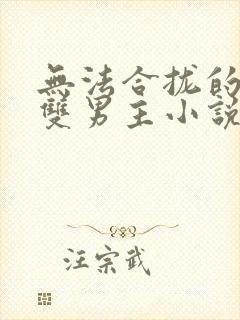 無法合拢的
雙男主小說
汪宗武